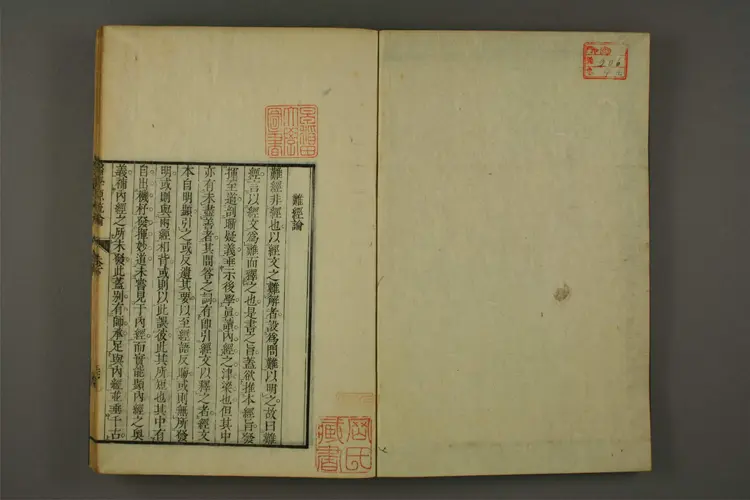 難經論
難經非經也以經文之難解者設爲問難以明之故曰難
經言以經文爲難而釋之也是書之旨蓋欲推本經旨發
揮至道剖晰疑義垂示後學眞讀內經之津梁也但其中
亦有未盡善者其問答之詞有即引經文以釋之者經文
本自明顯引之或反遺其要以至經語反晦或則無所發
明或則與兩經相背或則以此誤彼此其所短也其中有
自出機杼發揮妙道未嘗見于內經而實能顯內經之奧
義補內經之所未發此蓋別有師承足與內經並垂千古
藏書